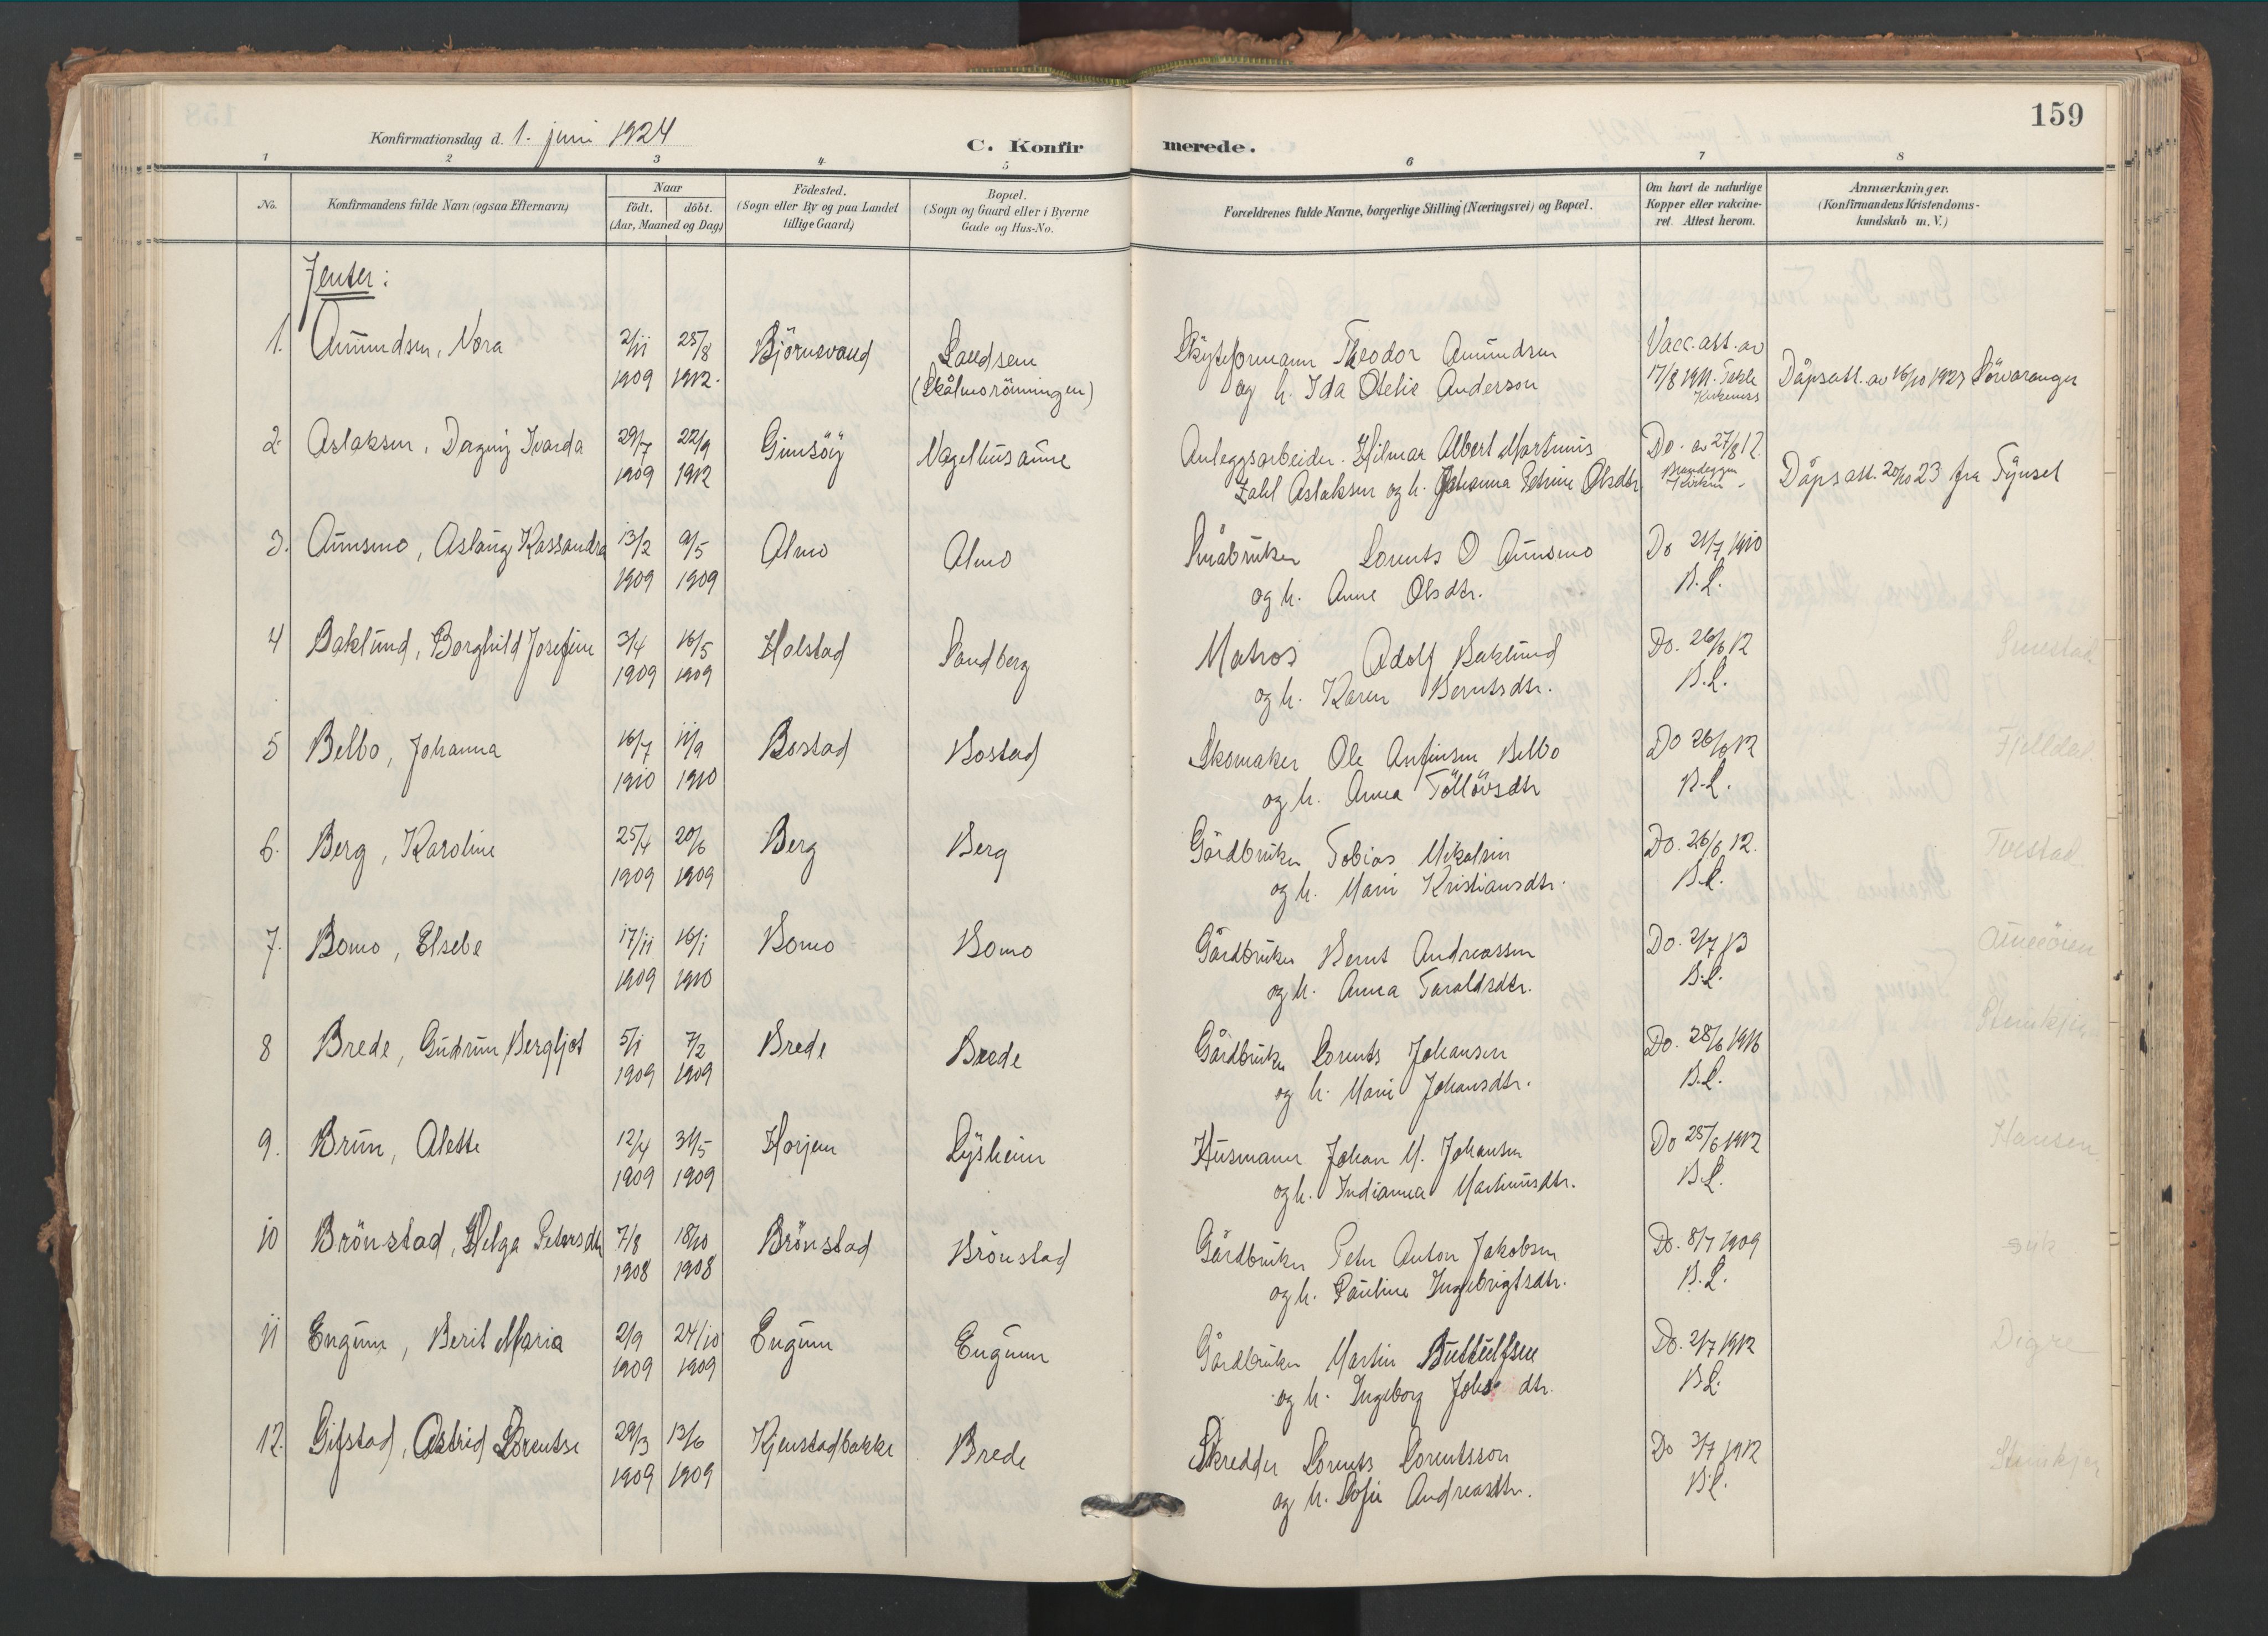 159
Konfirmationsdag d. 1. juni 1924
C. Konfirmerede.
1 2 3 4 5 6 7 8
No.
Konfirmandens fulde Navn (ogsaa Efternavn)
Naar
födt. döbt.
(Aar, Maaned og Dag)
Födested.
(Sogn eller By og paa Landet
tillige Gaard)
Bopæl.
(Sogn og Gaard eller i Byerne
Gade og Hus-No.
Forældrenes fulde Navne, borgerlige Stilling (Næringsvei) og Bopæl.
Om havt de naturlige
Kopper eller vakcine-
ret. Attest herom.
Anmærkninger.
(Konfirmandens Kristendoms-
kundskab m. V.)
Jenter:
1. Amundsen, Nora 2/11 25/8 Björnevand Landsem Skytsformann Theodor Amundsen Vacc. att. av
1909 1912. (Skålmorönningen) og h. Ida Otelie Anderson 17/8 1911. Dåpsatt. av 16/10 1923 Sörvaranger
Kirkenes
2. Aslaksen, Dagny Ivarda 29/7 22/9 Gimsöy Nagelhusaune Anleggsarbeider Hilmar Albert Martinus Do. av 27/8 12.
1909 1912 Zahl Aslaksen og h. Johanna Petrine Olsdtr Dåpsatt. 20/10 23 fra Tynset
3. Aunsmo, Aslaug Kassandra 13/2 9/5 Almo Almo Småbruker Lorents O Aunsmo Do 21/7 1910
1909 1909 og h. Anne Olsdtr. B.L.
4 Baklund, Borghild Josefine 3/4 16/5 Halstad Sandberg Matros Adolf Baklund Do. 26/6 12
1909 1909 og h. Karen Berntsdtr. B.L.
5 Belbo, Johanna 16/7 11/9 Bostad Bostad Skomaker Ole Anfinsen Belbo Do 26/6 12 Fjelldal
1910 1910 og h. Anna Töllövsdtr B.L.
6. Berg, Karoline 25/4 20/6 Berg Berg Gårdbruker Tobias Mikalsen Do. 26/6 12. Tvestad
1909 1909 og h. Marie Kristiansdtr. B.L.
7. Bomo, Elsebe 17/11 16/1 Bomo Bomo Gårdbruker Bernt Andreassen Do. 2/7 13
1909 1910 og h. Anna Taraldsdtr. B.L.
8 Brede, Gudrun Bergljot 5/1 7/2 Brede Brede Gårdbruker Lorents Johansen Do. 28/6 1916 Steinkjer
1909 1909 og h. Marie Johansdtr. B.L.
9. Brun, Alette 12/4 31/5 Horjem Lysheim Husmann Johan M. Johansen Do 25/6 1912 Hansen
1909 1909 og h. Indianna Martinusdtr. B.L.
10 Brönstad, Helga Petersdtr 7/8 18/10 Brönstad Brönstad Gårdbruker Peter Anton Jakobsen Do. 8/7 1909 syk
1908 1908 og h. Pauline Ingebrigtsdtr. B.L.
11 Engum, Berit Maria 2/9 24/10 Engum Engum Gårdbruker Martin Buttulfsen Do. 2/7 1912 Digre
1909 1909 og h. Ingeborg Johs dtr. B.L.
12. Gifstad, Astrid Lorentse 29/3 13/6 Kjenstadbakke Brede Skredder Lorents Lorentsson Do 3/7 1912 Steinkjer
1909 1909 og h. Sofie Andreasdtr. B.L.